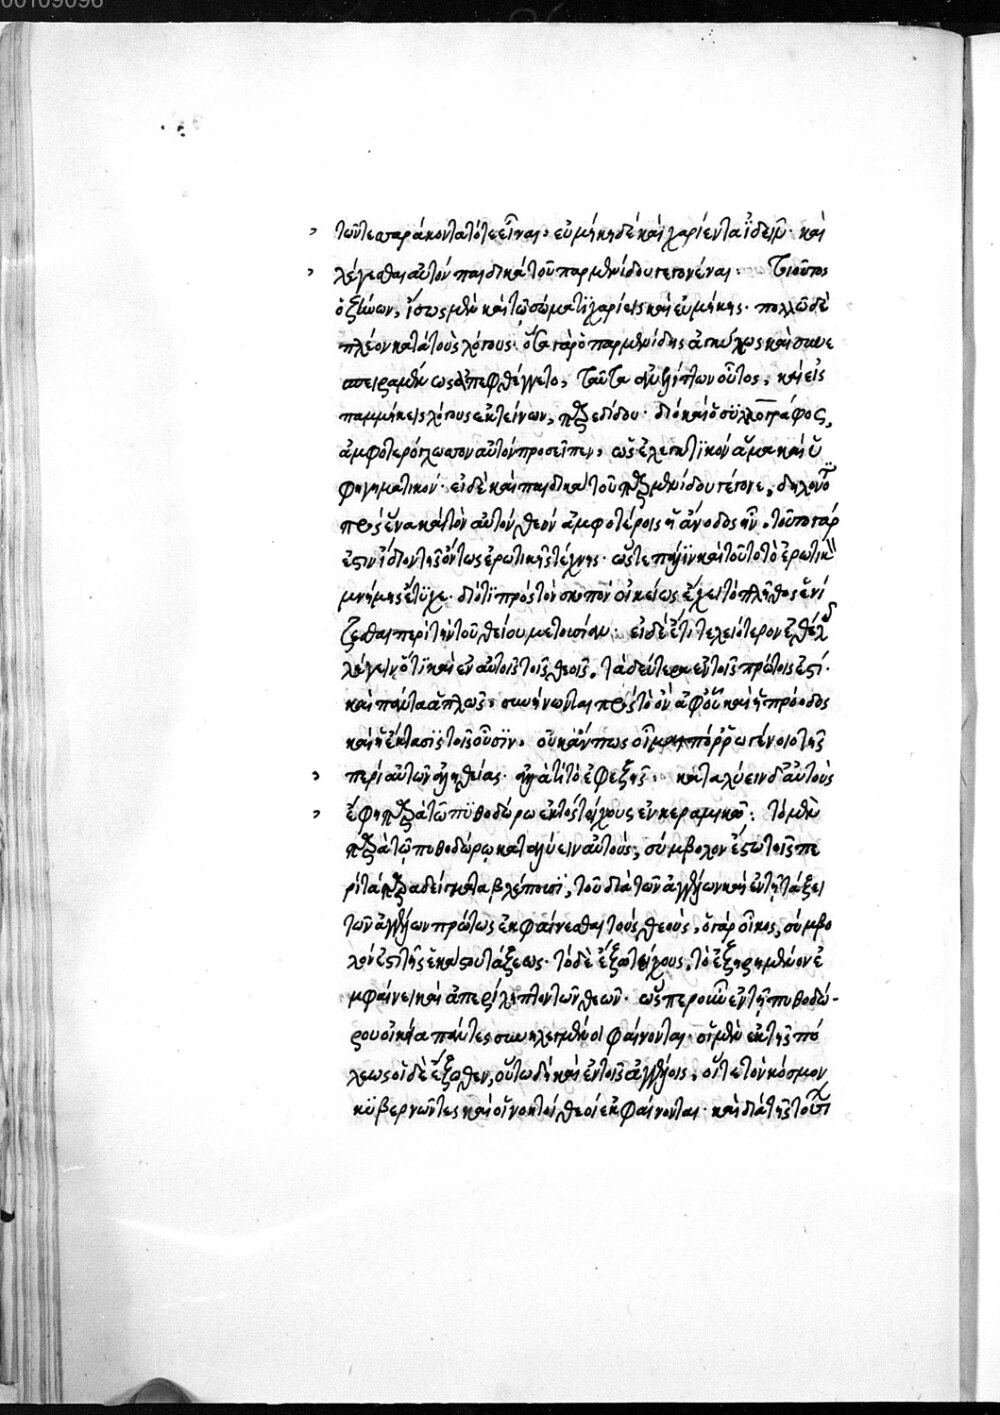 00109096
τῶν τεσσαράκοντα τότε εἶναι· εὐμήκη δὲ καὶ χαρίεντα ἰδεῖν· καὶ
λέγεσθαι αὐτὸν παιδικὰ τοῦ παρμενίδου γεγονέναι· Τοιοῦτος
ὁ ζήνων, ἴσως μὲν καὶ τῷ σώματι χαρίεις καὶ εὐμήκης· πολλῷ δὲ
πλέον κατὰ τοὺς λόγους· ὅσα γὰρ ὁ παρμενίδης ἀγκύλως καὶ συνε
σπειραμένως ἀπεφθέγγετο, ταῦτα ἀνελίττων οὗτος, καὶ εἰς
παμμήκεις λόγους ἐκτείνων, παρεδίδου· διὸ καὶ ὁ σιλλογράφος,
ἀμφοτερόγλωσσον αὐτὸν προσεῖπεν, ὡς ἐλεγκτικὸν ἅμα καὶ ὑ
φηγηματικόν· εἰ δὲ καὶ παιδικὰ τοῦ παρμενίδου γέγονε, δηλονότι
πρὸς ἕνα καὶ τὸν αὐτὸν θεὸν ἀμφοτέροις ἡ ἄνοδος ἦν· τοῦτο γάρ
ἐστιν ἴδιον τῆς ὄντως ἐρωτικῆς τέχνης· ὥστε πάλιν καὶ τοῦτο τὸ ἐρωτικὸν
μνήμης ἔτυχε· διότι πρὸς τὸν σκοπὸν οἰκείως ἔχει τὸ πλῆθος ἑνί
ζεσθαι περὶ τὴν τοῦ θείου μετουσίαν· εἰ δὲ ἔτι τελειότερον ἐθέλεις
λέγειν ὅτι καὶ ἐν αὐτοῖς τοῖς θεοῖς, τὰ δεύτερα ἐν τοῖς πρώτοις ἐστί·
καὶ πάντα ἁπλῶς, συνήνωνται πρὸς τὸ ὂν ἀφ' οὗ καὶ ἡ πρόοδος
καὶ ἡ ἔκτασις τοῖς οὖσιν, οὐκ ἄν πως οἶμαι πόρρω γένοιο τῆς
περὶ αὐτῶν ἀληθείας· ἀλλὰ τί τὸ ἐφεξῆς· καταλύειν δ' αὐτοὺς
ἔφη παρὰ τῷ πυθοδώρῳ ἐκτὸς τείχους ἐν κεραμικῷ· τὸ μὲν
παρὰ τῷ πυθοδώρῳ καταλύειν αὐτοὺς, σύμβολον ἔστω τοῖς πε
ρὶ τὰ παραδείγματα βλέπουσι, τοῦ διὰ τῶν ἀγγέλων καὶ ἐν τῇ τάξει
τῶν ἀγγέλων πρώτως ἐκφαίνεσθαι τοὺς θεοὺς, ὁ γὰρ οἶκος, σύμβο
λόν ἐστι τῆς ἑκάστου τάξεως· τὸ δὲ ἔξω τείχους, τὸ ἐξῃρημένον ἐ
μφαίνει καὶ ἀπερίληπτον τῶν θεῶν· ὥσπερ οὖν ἐν τῇ πυθοδώ-
ρου οἰκίᾳ πάντες συνηγμένοι φαίνονται· οἱ μὲν ἐκ τῆς πό
λεως οἱ δὲ ἔξωθεν, οὕτω δὴ καὶ ἐν τοῖς ἀγγέλοις, οἵ τε τὸν κόσμον
κυβερνῶντες καὶ οἱ νοητοὶ θεοὶ ἐκφαίνονται· καὶ διὰ τῆς τούτων